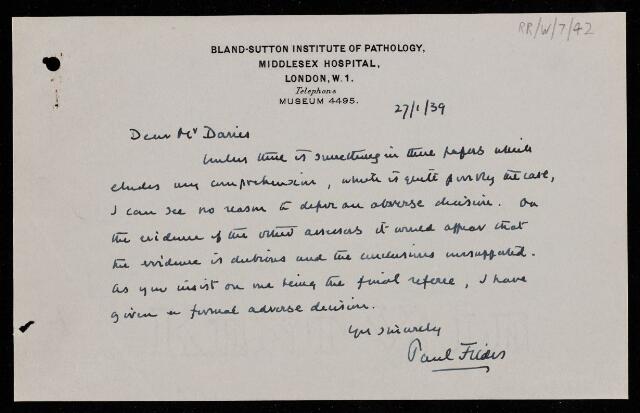 RR/W/7/42
BLAND-SUTTON INSTITUTE OF PATHOLOGY,
MIDDLESEX HOSPITAL,
LONDON, W.1.
Telephone
MUSEUM 4495.
27/1/39
Dear Mr Davies
Unless there is something in these papers which
eludes my comprehension, which is quite possibly the case,
I can see no reason to defer an adverse decision. On
the evidence of the other assessors it would appear that
the evidence is dubious and the conclusions unsupported.
As you insist on me being the final referee, I have
given a formal adverse decision.
Yrs sincerely
Paul Fildes